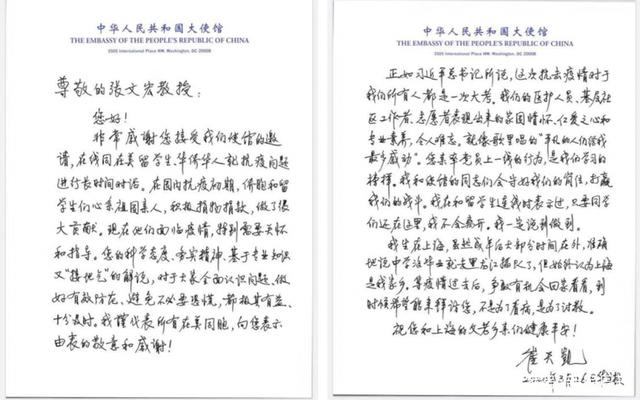 中华人民共和国大使馆
THE EMBASSY OF THE PEOPLE'S REPUBLIC OF CHINA
3505 International Place NW, Washington, DC 20008
尊敬的张文宏教授：
您好！
非常感谢您接受我们使馆的邀
请，在线同在美留学生、华侨华人就抗疫问题
进行长时间对话。在国内抗疫初期，侨胞和留
学生们心系祖国亲人，积极捐物捐款，做了很
大贡献。现在他们面临疫情，特别需要关怀
和指导。您的科学态度、务实精神、基于专业知识
又“接地气”的解说，对于大家全面认识问题、做
好有效防范、避免不必要恐慌，都极其有益、
十分及时。我谨代表所有在美同胞，向您表示
由衷的敬意和感谢！
中华人民共和国大使馆
THE EMBASSY OF THE PEOPLE'S REPUBLIC OF CHINA
3505 International Place NW, Washington, DC 20008
正如习近平总书记所说，这次抗击疫情对于
我们所有人都是一次大考。我们的医护人员、基层社
区工作者、志愿者表现出来的家国情怀、仁爱之心和
专业素养，令人难忘。就像歌里唱的“平凡的人们给我
最多感动”。您亲率党员上一线的行为，是我们学习的
榜样。我和使馆的同志们会守好我们的岗位，打赢
我们的战斗。我在和留学生连线时表示过，只要同学
们还在这里，我不会离开。我一定说到做到。
我生在上海，虽然成年后大部分时间在外，准确
地说中学没毕业就去黑龙江插队了，但始终认为上海
是我家乡。等疫情过去后，争取有机会回家看看，到
时候希望能来拜访您，不是为了看病，是为了讨教。
祝您和上海的父老乡亲们健康平安！
崔天凯
2020年3月26日